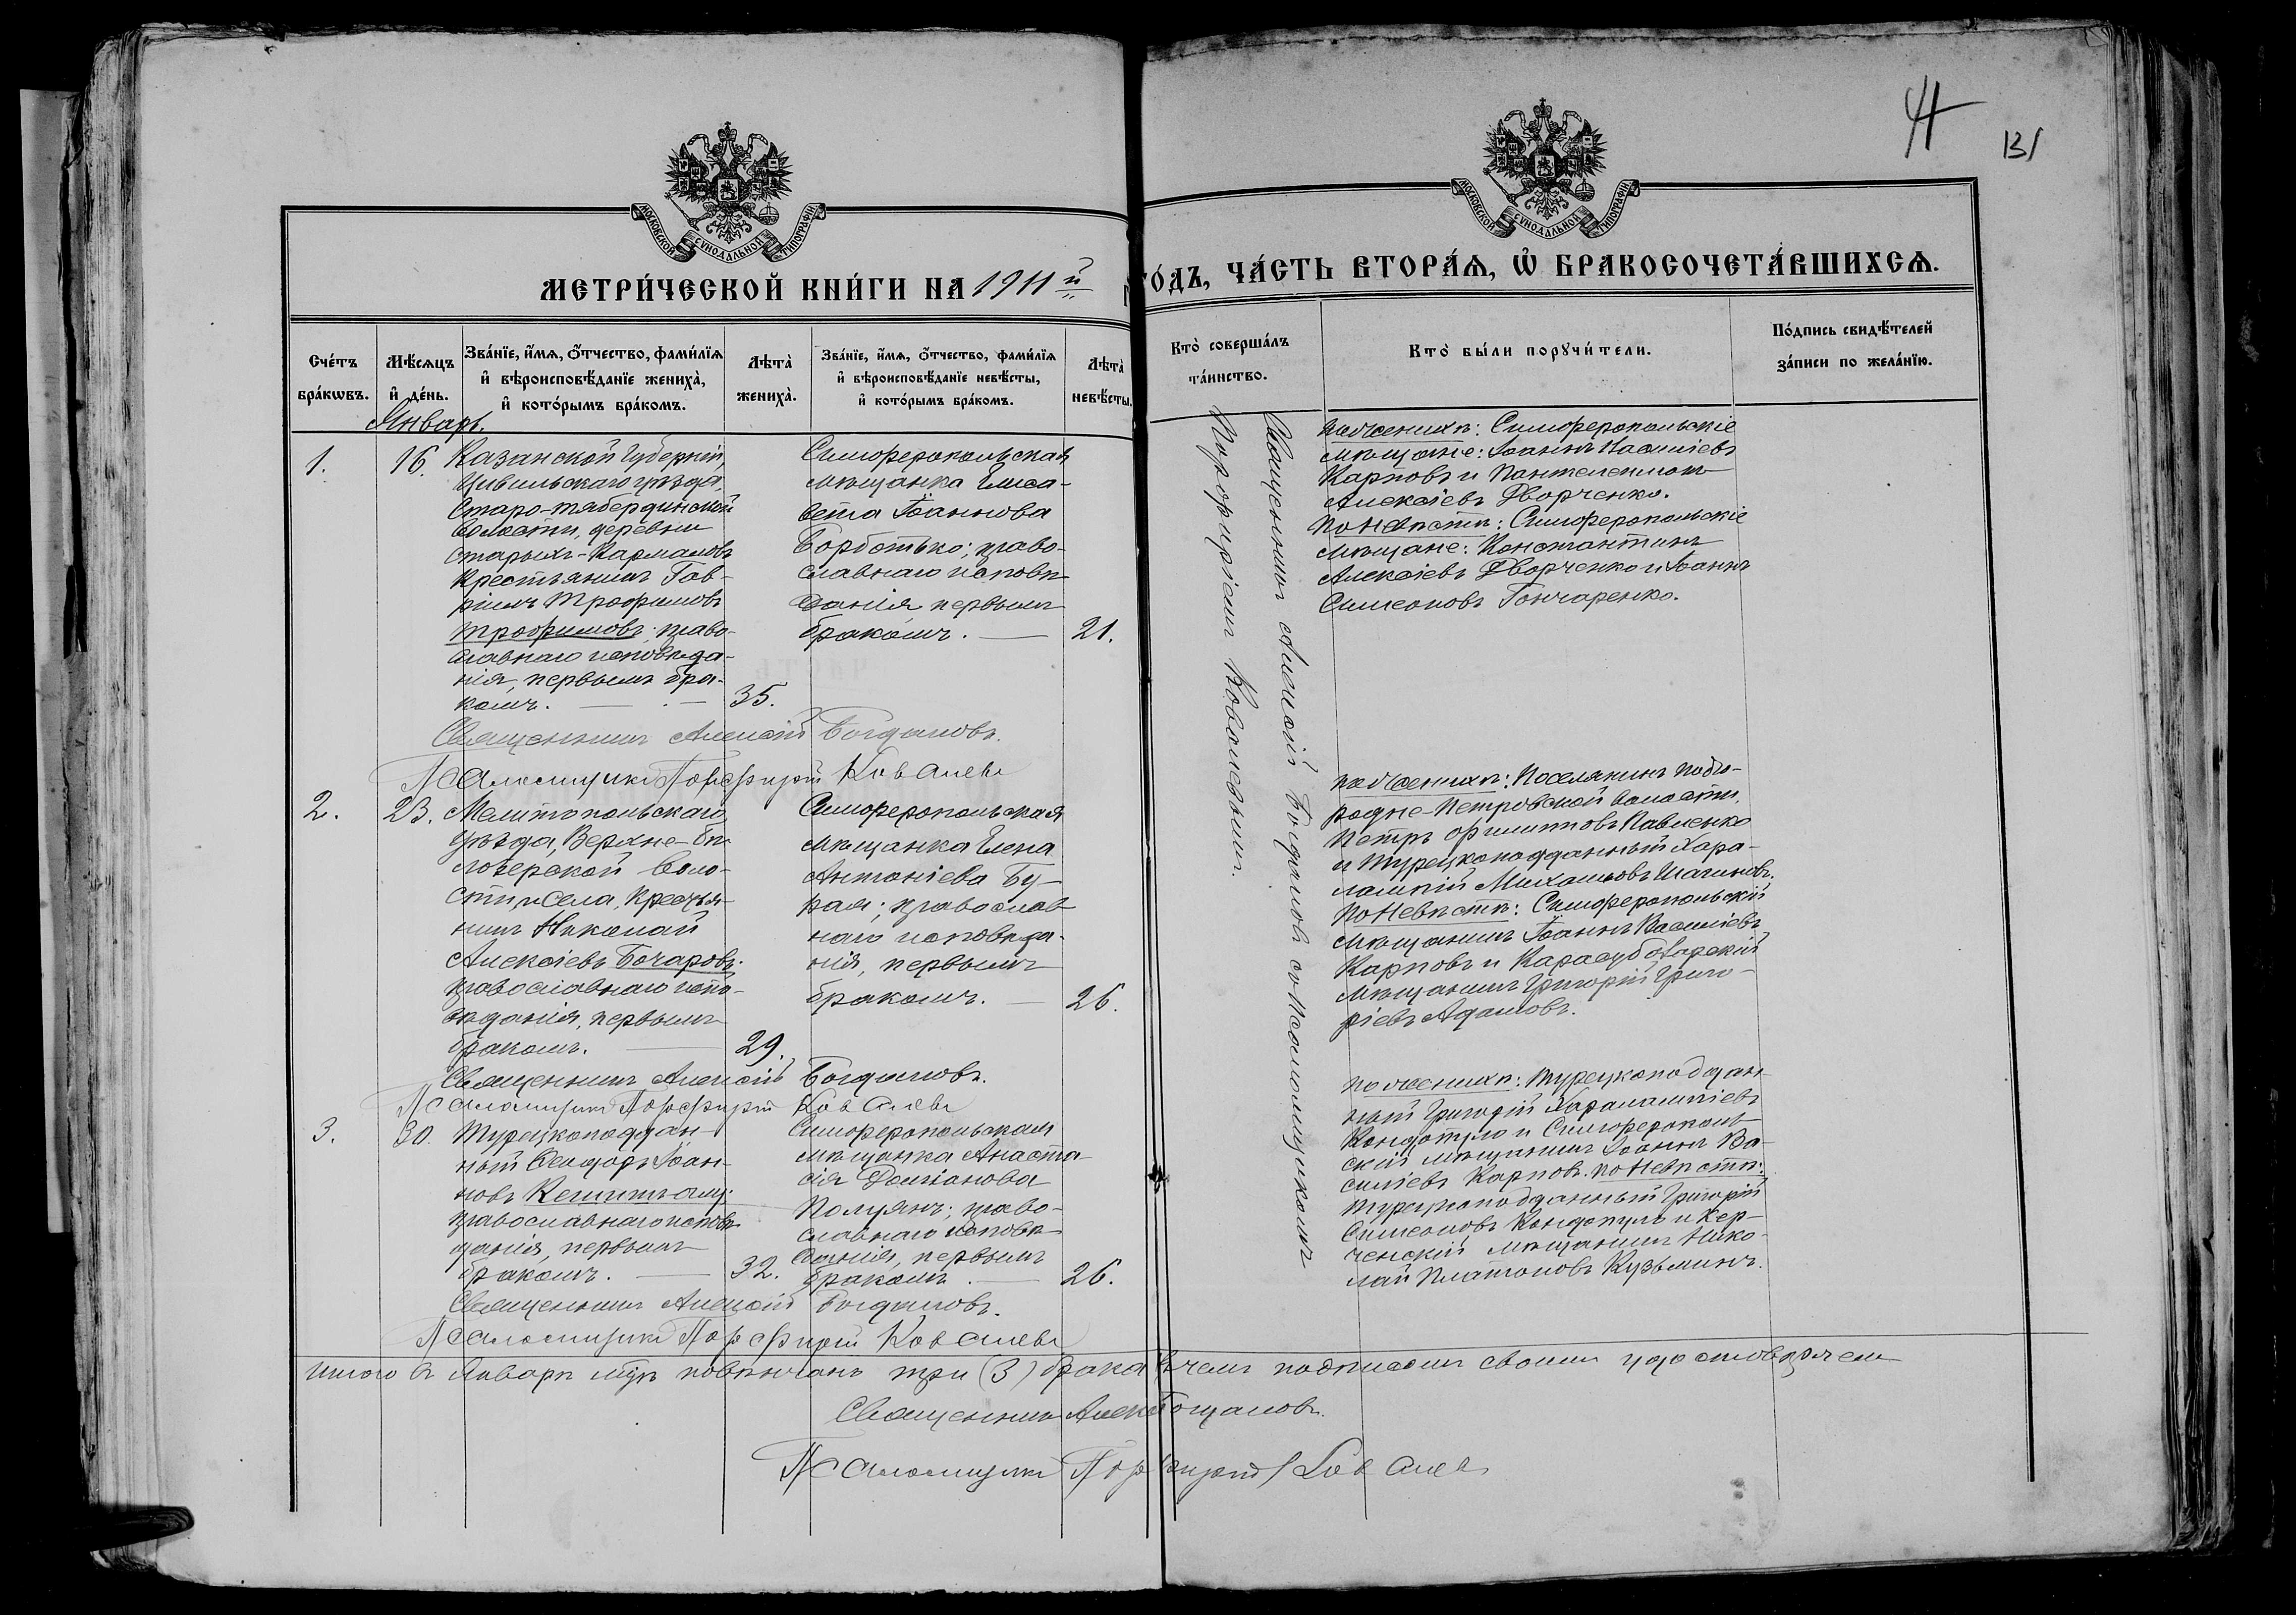 4
131
МОСКОВСКОЙ СѴНОДАЛЬНОЙ ТИПОГРАФІИ
МОСКОВСКОЙ СѴНОДАЛЬНОЙ ТИПОГРАФІИ
МЕТРИ́ЧЕСКОЙ КНИ́ГИ НА 1911й
ГО́ДЪ, ЧА́СТЬ ВТОРА́Ѧ, Ѡ҆ БРАКОСОЧЕТА́ВШИХСѦ.
Сче́тъ
бра́кѡвъ.
Мѣ́сѧцъ
и҆ де́нь.
Зва́нїе, и҆́мѧ, ѻ҆́тчество, фами́лїѧ
и҆ вѣроисповѣ́данїе жениха̀,
и҆ кото́рымъ бра́комъ.
Лѣта̀
жениха̀.
Зва́нїе, и҆́мѧ, ѻ҆́тчество, фами́лїѧ
и҆ вѣроисповѣ́данїе невѣ́сты,
и҆ кото́рымъ бра́комъ.
Лѣта̀
невѣ́сты.
Кто̀ соверша́лъ
та́инство.
Кто̀ бы́ли порꙋчи́тели.
По́дпись свидѣ́телей
за́писи по жела́нїю.
Январь.
1.
16.
Казанской Губерніи,
Цивильскаго уѣзда,
Старо-тябердинской
волости, деревни
Старыхъ-Кармаловъ
крестьянинъ Гав-
ріилъ Трофимовъ
Трофимовъ; право-
славнаго исповѣда-
нія, первымъ бра-
комъ.
35.
Симферопольская
мѣщанка Елиса-
вета Іоаннова
Борботько; право-
славнаго исповѣ-
данія, первымъ
бракомъ.
21.
Священникъ Алексій Богдановъ со псаломщикомъ
Порфиріемъ Ковалевымъ.
По женихѣ: Симферопольскіе
мѣщане: Іоаннъ Василіевъ
Карповъ и Пантелеимонъ
Алексіевъ Дворченко.
По невѣстѣ: Симферопольскіе
мѣщане: Константинъ
Алексіевъ Дворченко и Іоаннъ
Симеоновъ Гончаренко.
Священникъ Алексій Богдановъ.
Псаломщикъ Порфирій Ковалевъ
2.
23.
Мелитопольскаго
уѣзда, Верхне-бѣ-
лозерской воло-
сти, и села, крестья-
нинъ Николай
Алексіевъ Бочаровъ;
православнаго испо-
вѣданія, первымъ
бракомъ.
29.
Симферопольская
мѣщанка Елена
Антоніева Бу-
; православ-
наго исповѣда-
нія, первымъ
бракомъ.
26.
По женихѣ: Поселянинъ
-Петровской волости,
Петръ Филипповъ Павленко
и Турецкоподданный Хара-
лампій Михаиловъ
По невѣстѣ: Симферопольскій
мѣщанинъ Іоаннъ Василіевъ
Карповъ и Карасубазарскій
мѣщанинъ Григорій Григо-
ріевъ Адамовъ.
Священникъ Алексій Богдановъ.
Псаломщикъ Порфирій Ковалевъ
3.
30.
Турецкоподдан-
ный Ѳеодоръ Іоан-
новъ
православнаго исповѣ-
данія, первымъ
бракомъ.
32.
Симферопольская
мѣщанка Анаста-
сія Даміанова
Полуянъ; право-
славнаго исповѣ-
данія, первымъ
бракомъ.
26.
По женихѣ: Турецкоподдан-
ный Григорій Харалампіевъ
и Симферополь-
скій мѣщанинъ Іоаннъ Ва-
силіевъ Карповъ. По невѣстѣ:
Турецкоподданный Григорій
Симеоновъ и Кер-
ченскій мѣщанинъ Нико-
лай Платоновъ Кузьминъ.
Священникъ Алексій Богдановъ.
Псаломщикъ Порфирій Ковалевъ
Итого въ Январѣ м-цѣ повѣнчанъ три (3) брака въ чемъ подписомъ своимъ удостовѣряемъ
Священникъ Алексій Богдановъ.
Псаломщикъ Порфирій Ковалевъ